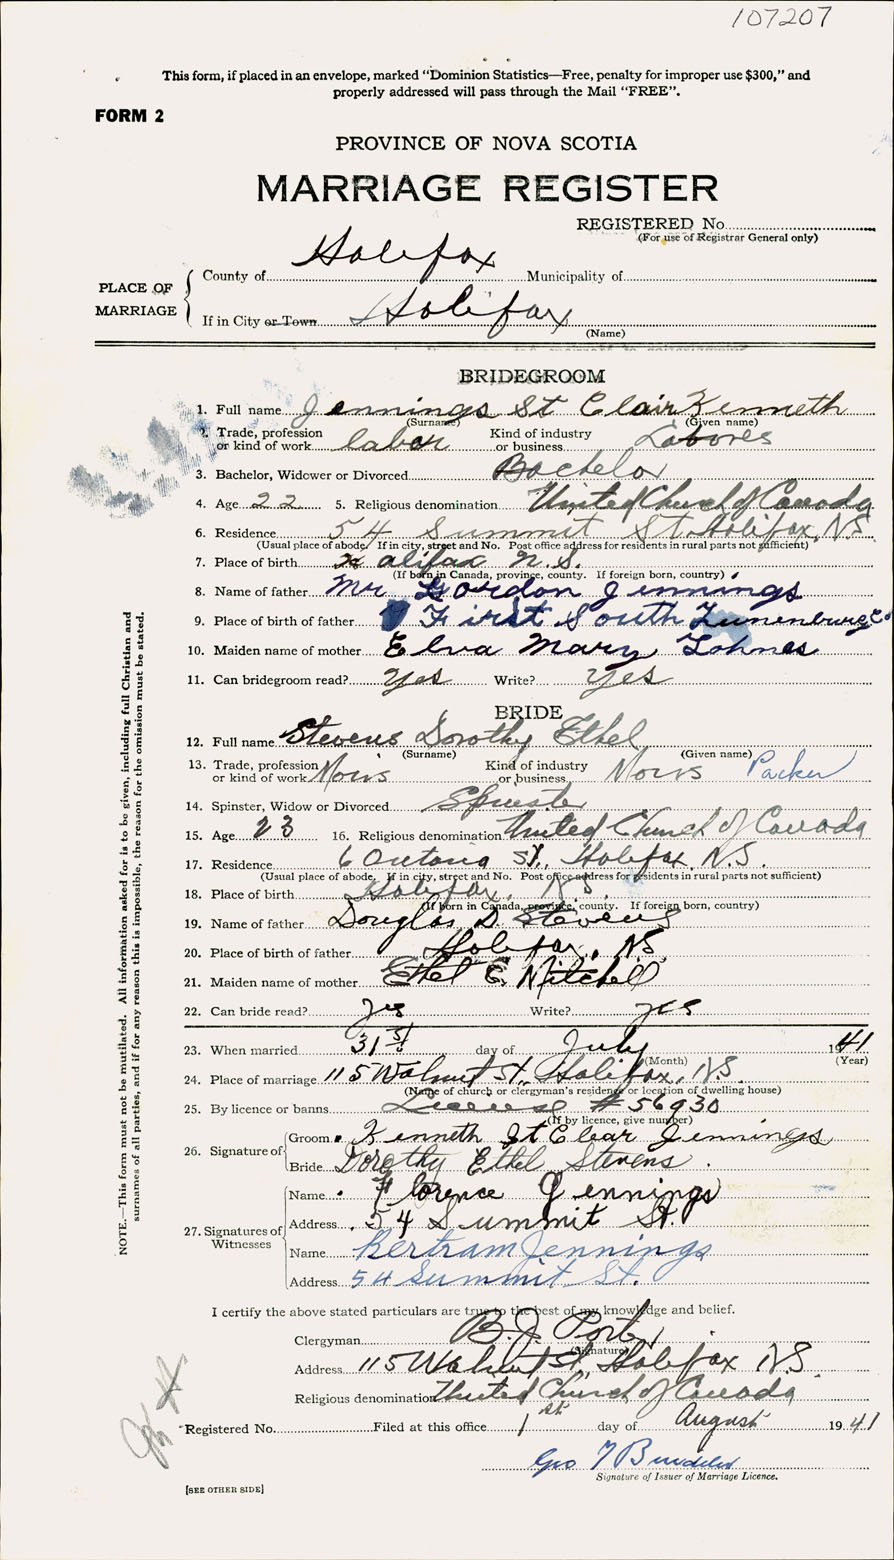 107207
This form, if placed in an envelope, marked "Dominion Statistics—Free, penalty for improper use $300," and
properly addressed will pass through the Mail "FREE".
FORM 2
PROVINCE OF NOVA SCOTIA
MARRIAGE REGISTER
REGISTERED No.
(For use of Registrar General only)
PLACE OF MARRIAGE
County of Halifax Municipality of
If in City or Town Halifax
(Name)
BRIDEGROOM
1. Full name Jennings St Clair Kenneth
(Surname) (Given name)
2. Trade, profession or kind of work labor Kind of industry or business
3. Bachelor, Widower or Divorced Bachelor
4. Age 22 5. Religious denomination United Church of Canada
6. Residence 54 Summit St. Halifax, N.S.
(Usual place of abode. If in city, street and No. Post office address for residents in rural parts not sufficient)
7. Place of birth Halifax N.S.
(If born in Canada, province, county. If foreign born, country)
8. Name of father Mr Gordon Jennings
9. Place of birth of father First South Lunenburg Co
10. Maiden name of mother Elva Mary Lohnes
11. Can bridegroom read? Yes Write? Yes
BRIDE
12. Full name Stevens Dorothy Ethel
(Surname) (Given name)
13. Trade, profession or kind of work Kind of industry or business Packer
14. Spinster, Widow or Divorced Spinster
15. Age 23 16. Religious denomination United Church of Canada
17. Residence 6 St., Halifax, N.S.
(Usual place of abode. If in city, street and No. Post office address for residents in rural parts not sufficient)
18. Place of birth Halifax, N.S.
(If born in Canada, province, county. If foreign born, country)
19. Name of father Douglas D. Stevens
20. Place of birth of father Halifax, N.S.
21. Maiden name of mother Ethel E. Mitchell
22. Can bride read? Yes Write? Yes
23. When married 31st day of July 1941
(Month) (Year)
24. Place of marriage 115 Walnut St., Halifax, N.S.
(Name of church or clergyman's residence or location of dwelling house)
25. By licence or banns License # 56930
(If by licence, give number)
26. Signature of
Groom Kenneth St Clear Jennings
Bride Dorothy Ethel Stevens
27. Signatures of Witnesses
Name Florence Jennings
Address 54 Summit St.
Name Bertram Jennings
Address 54 Summit St.
I certify the above stated particulars are true to the best of my knowledge and belief.
Clergyman B. J. Porter
(Signature)
Address 115 Walnut St., Halifax N.S.
Religious denomination United Church of Canada
Registered No. Filed at this office 1st day of August 1941
Geo
Signature of Issuer of Marriage Licence.
[SEE OTHER SIDE]
NOTE.—This form must not be mutilated. All information asked for is to be given, including full Christian and
surnames of all parties, and if for any reason this is impossible, the reason for the omission must be stated.